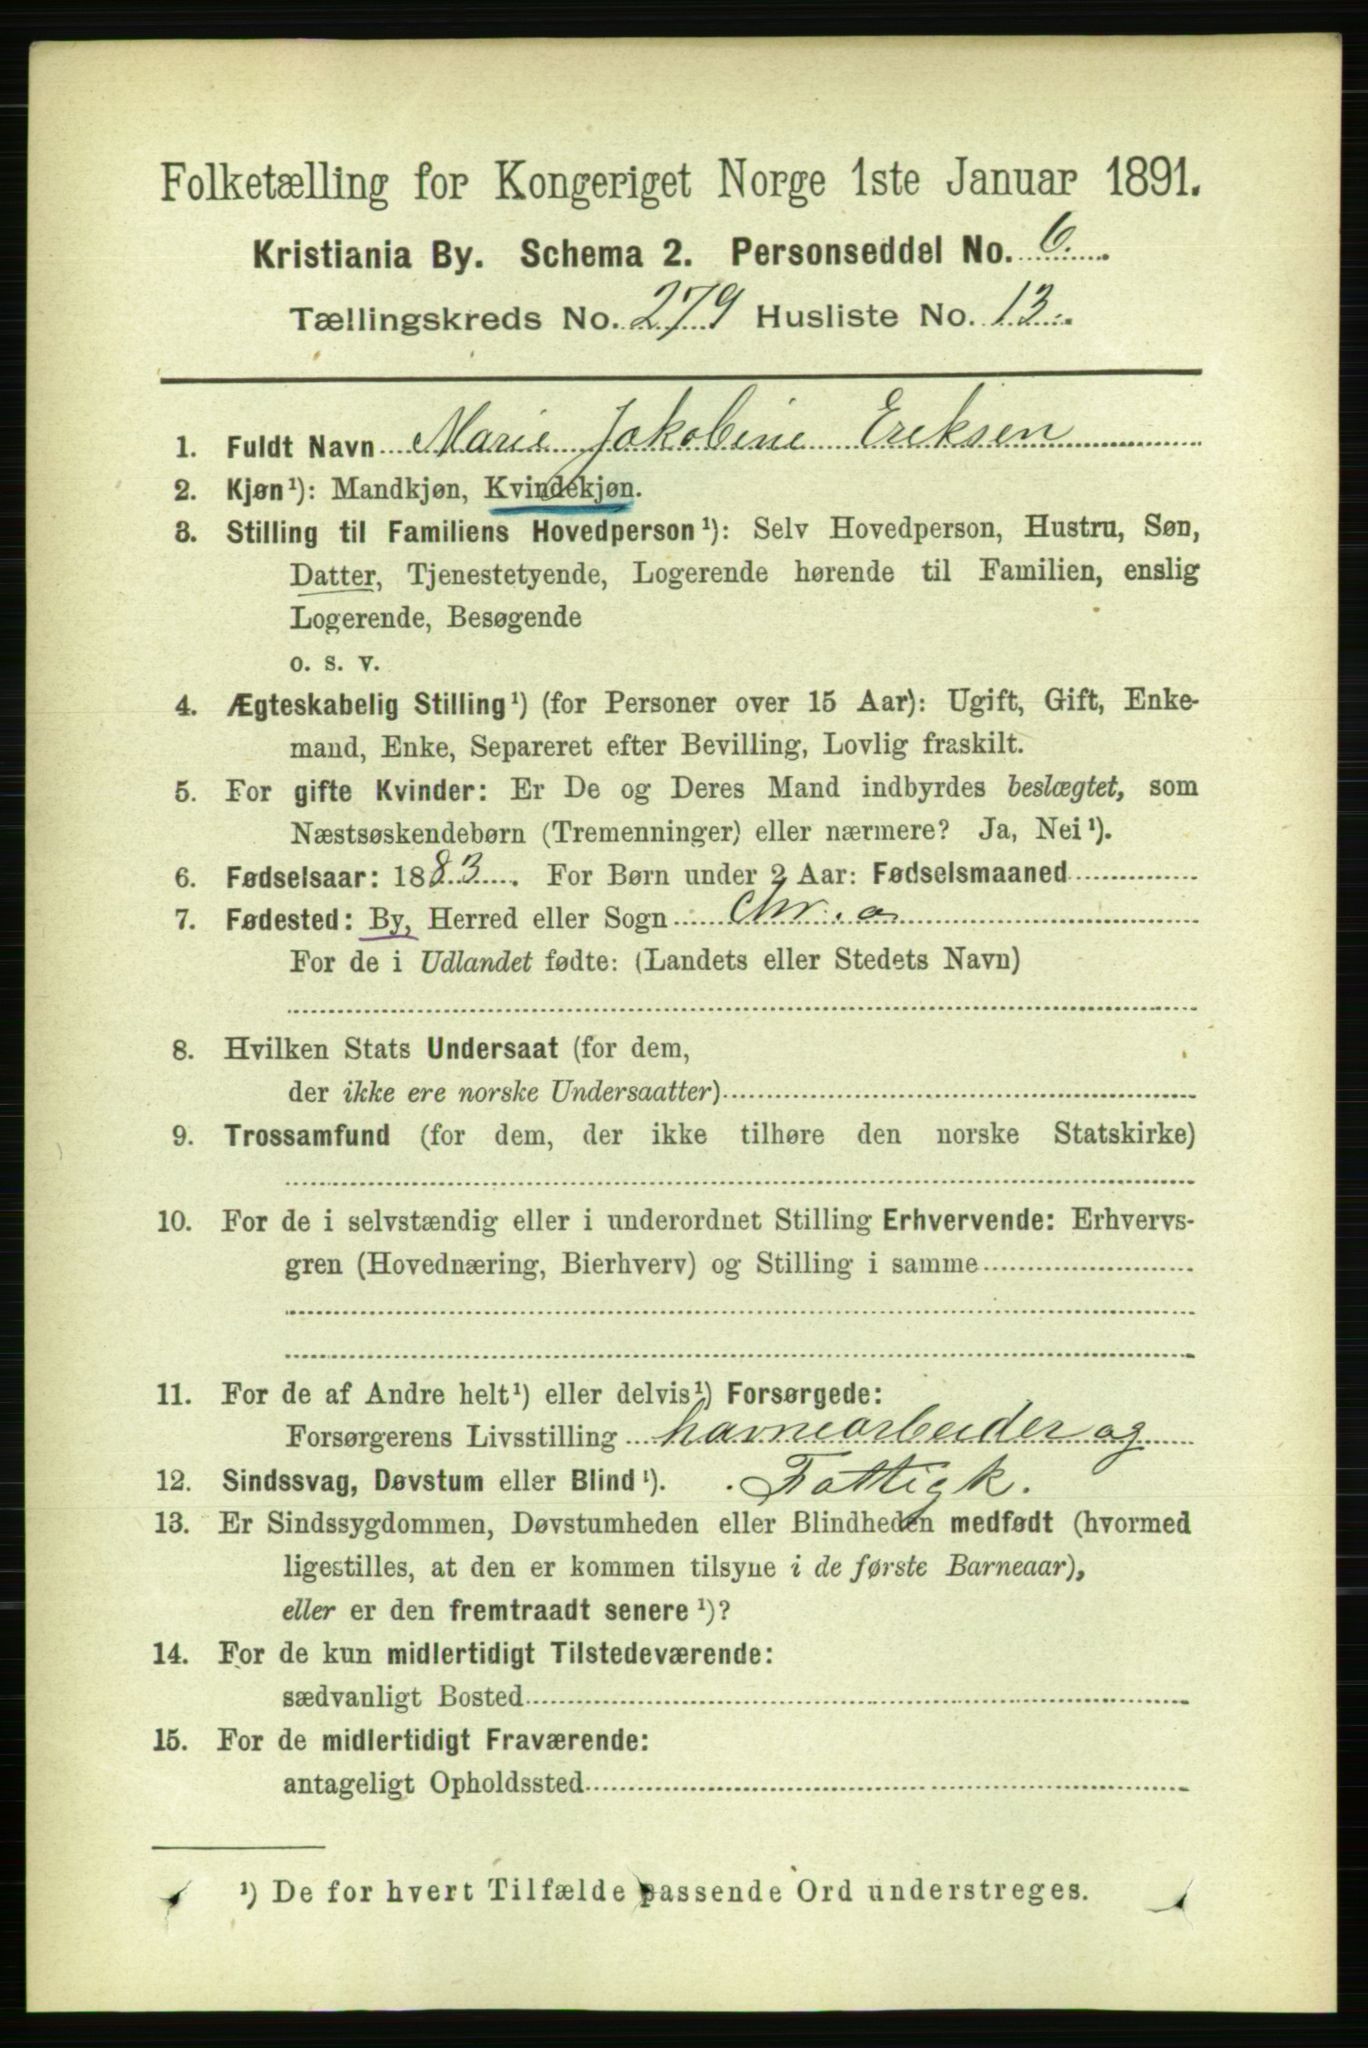 Folketælling for Kongeriget Norge 1ste Januar 1891.
Kristiania By. Schema 2. Personseddel No. 6.
Tællingskreds No. 279 Husliste No. 13.
1. Fuldt Navn Marie Jakobine Eriksen
2. Kjøn¹): Mandkjøn, Kvindekjøn.
3. Stilling til Familiens Hovedperson¹): Selv Hovedperson, Hustru, Søn,
Datter, Tjenestetyende, Logerende hørende til Familien, enslig
Logerende, Besøgende
o. s. v.
4. Ægteskabelig Stilling¹) (for Personer over 15 Aar): Ugift, Gift, Enke-
mand, Enke, Separeret efter Bevilling, Lovlig fraskilt.
5. For gifte Kvinder: Er De og Deres Mand indbyrdes beslægtet, som
Næstsøskendebørn (Tremenninger) eller nærmere? Ja, Nei¹).
6. Fødselsaar: 1883. For Børn under 2 Aar: Fødselsmaaned
7. Fødested: By, Herred eller Sogn Chr.a
For de i Udlandet fødte: (Landets eller Stedets Navn)
8. Hvilken Stats Undersaat (for dem,
der ikke ere norske Undersaatter)
9. Trossamfund (for dem, der ikke tilhøre den norske Statskirke)
10. For de i selvstændig eller i underordnet Stilling Erhvervende: Erhvervs-
gren (Hovednæring, Bierhverv) og Stilling i samme
11. For de af Andre helt¹) eller delvis¹) Forsørgede:
Forsørgerens Livsstilling havnearbeider og
12. Sindssvag, Døvstum eller Blind¹). Fattigk.
13. Er Sindssygdommen, Døvstumheden eller Blindheden medfødt (hvormed
ligestilles, at den er kommen tilsyne i de første Barneaar),
eller er den fremtraadt senere¹)?
14. For de kun midlertidigt Tilstedeværende:
sædvanligt Bosted
15. For de midlertidigt Fraværende:
antageligt Opholdssted
¹) De for hvert Tilfælde passende Ord understreges.